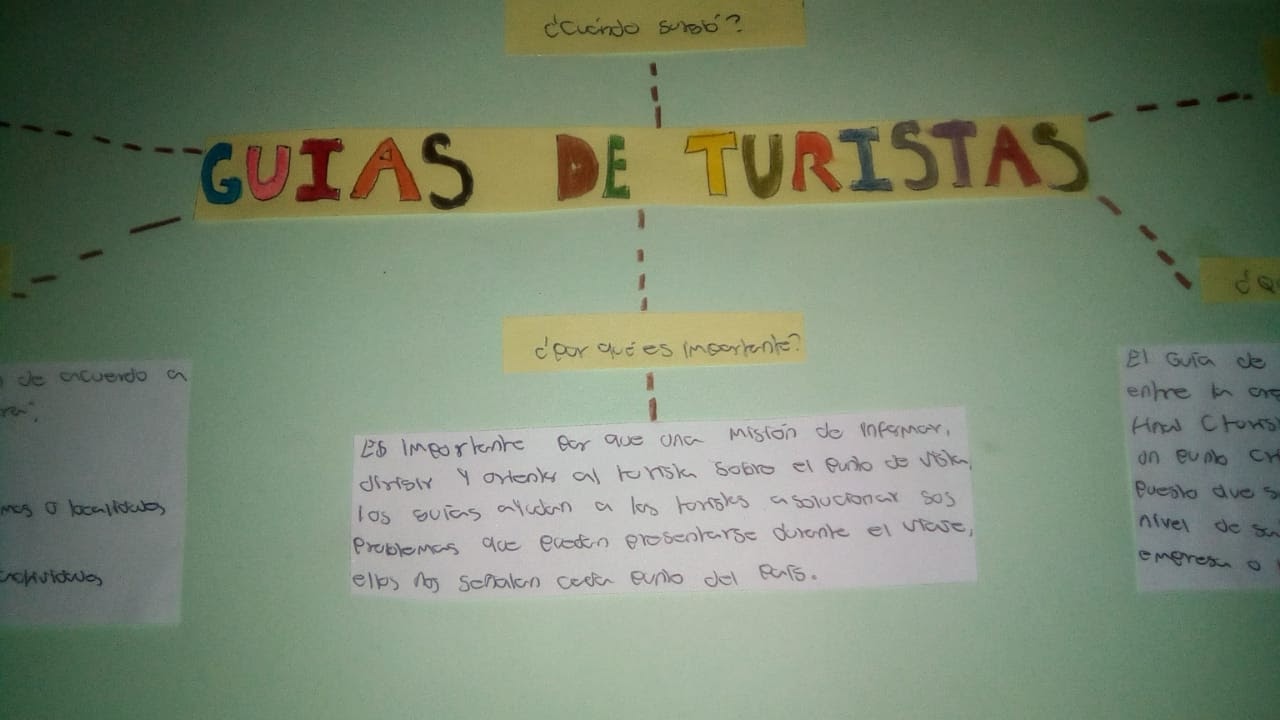 ¿Cuándo surgó?
GUIAS DE TURISTAS
¿Por qué es importante?
¿Q
de acuerdo a
Es importante por que una misión de informar,
dirigir y orientar al turista sobre el punto de vista,
los guías ayudan a los turistas a solucionar sos
problemas que pueden presentarse durante el viaje,
ellos nos señalan cada punto del país.
mas o localidades
actividades
El Guía de
entre la
un punto
puesto que s
nivel de
empresa o